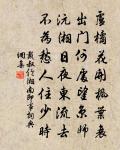 盧橘花開楓葉衰
出門何處望京師
沅湘日夜東流去
不為愁人住少時
戴叔倫湘南即事詞典
網集